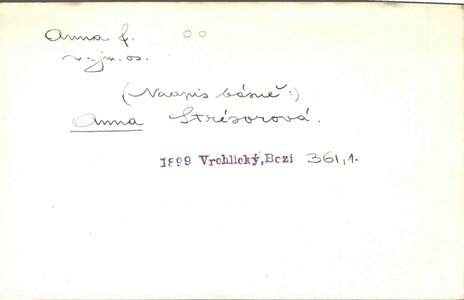 Anna f. oo
v. jm. os.
(Nadpis básně:)
Anna Strésorová.
1899 Vrchlický, Bozi 361,1.